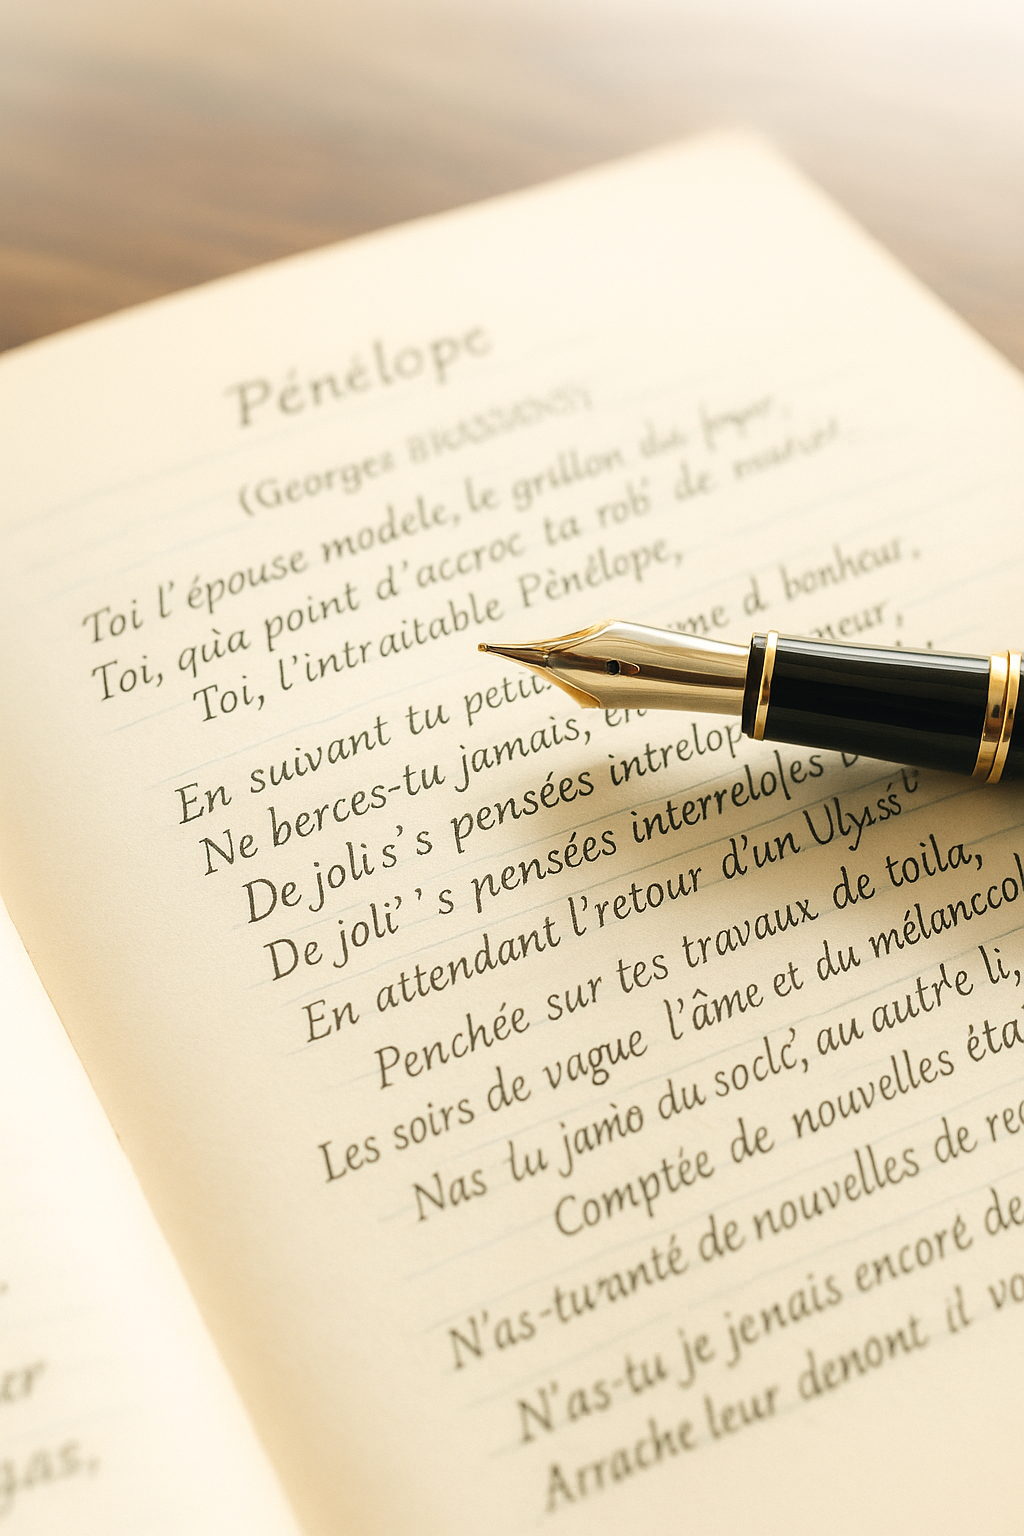 Pénélope
(Georges BRASSENS)
Toi l'épouse modele, le grillon du foyer,
Toi, qùa point d'accroc ta rob' de
Toi, l'intraitable Pènélope,
En suivant tu petit d bonheur.
Ne berces-tu jamais, en
De joli s' s pensées intrelop
De joli' ' s pensées interreloles
En attendant l'retour d'un Ulyss'
Penchée sur tes travaux de toila,
Les soirs de vague l'âme et du mélanccol
Nas tu jamio du soclc', au autr'e li,
Comptée de nouvelles éta
N'as-turanté de nouvelles de rec
N'as-tu je jenais encoré de
Arrache leur denont il vo
er
gas,